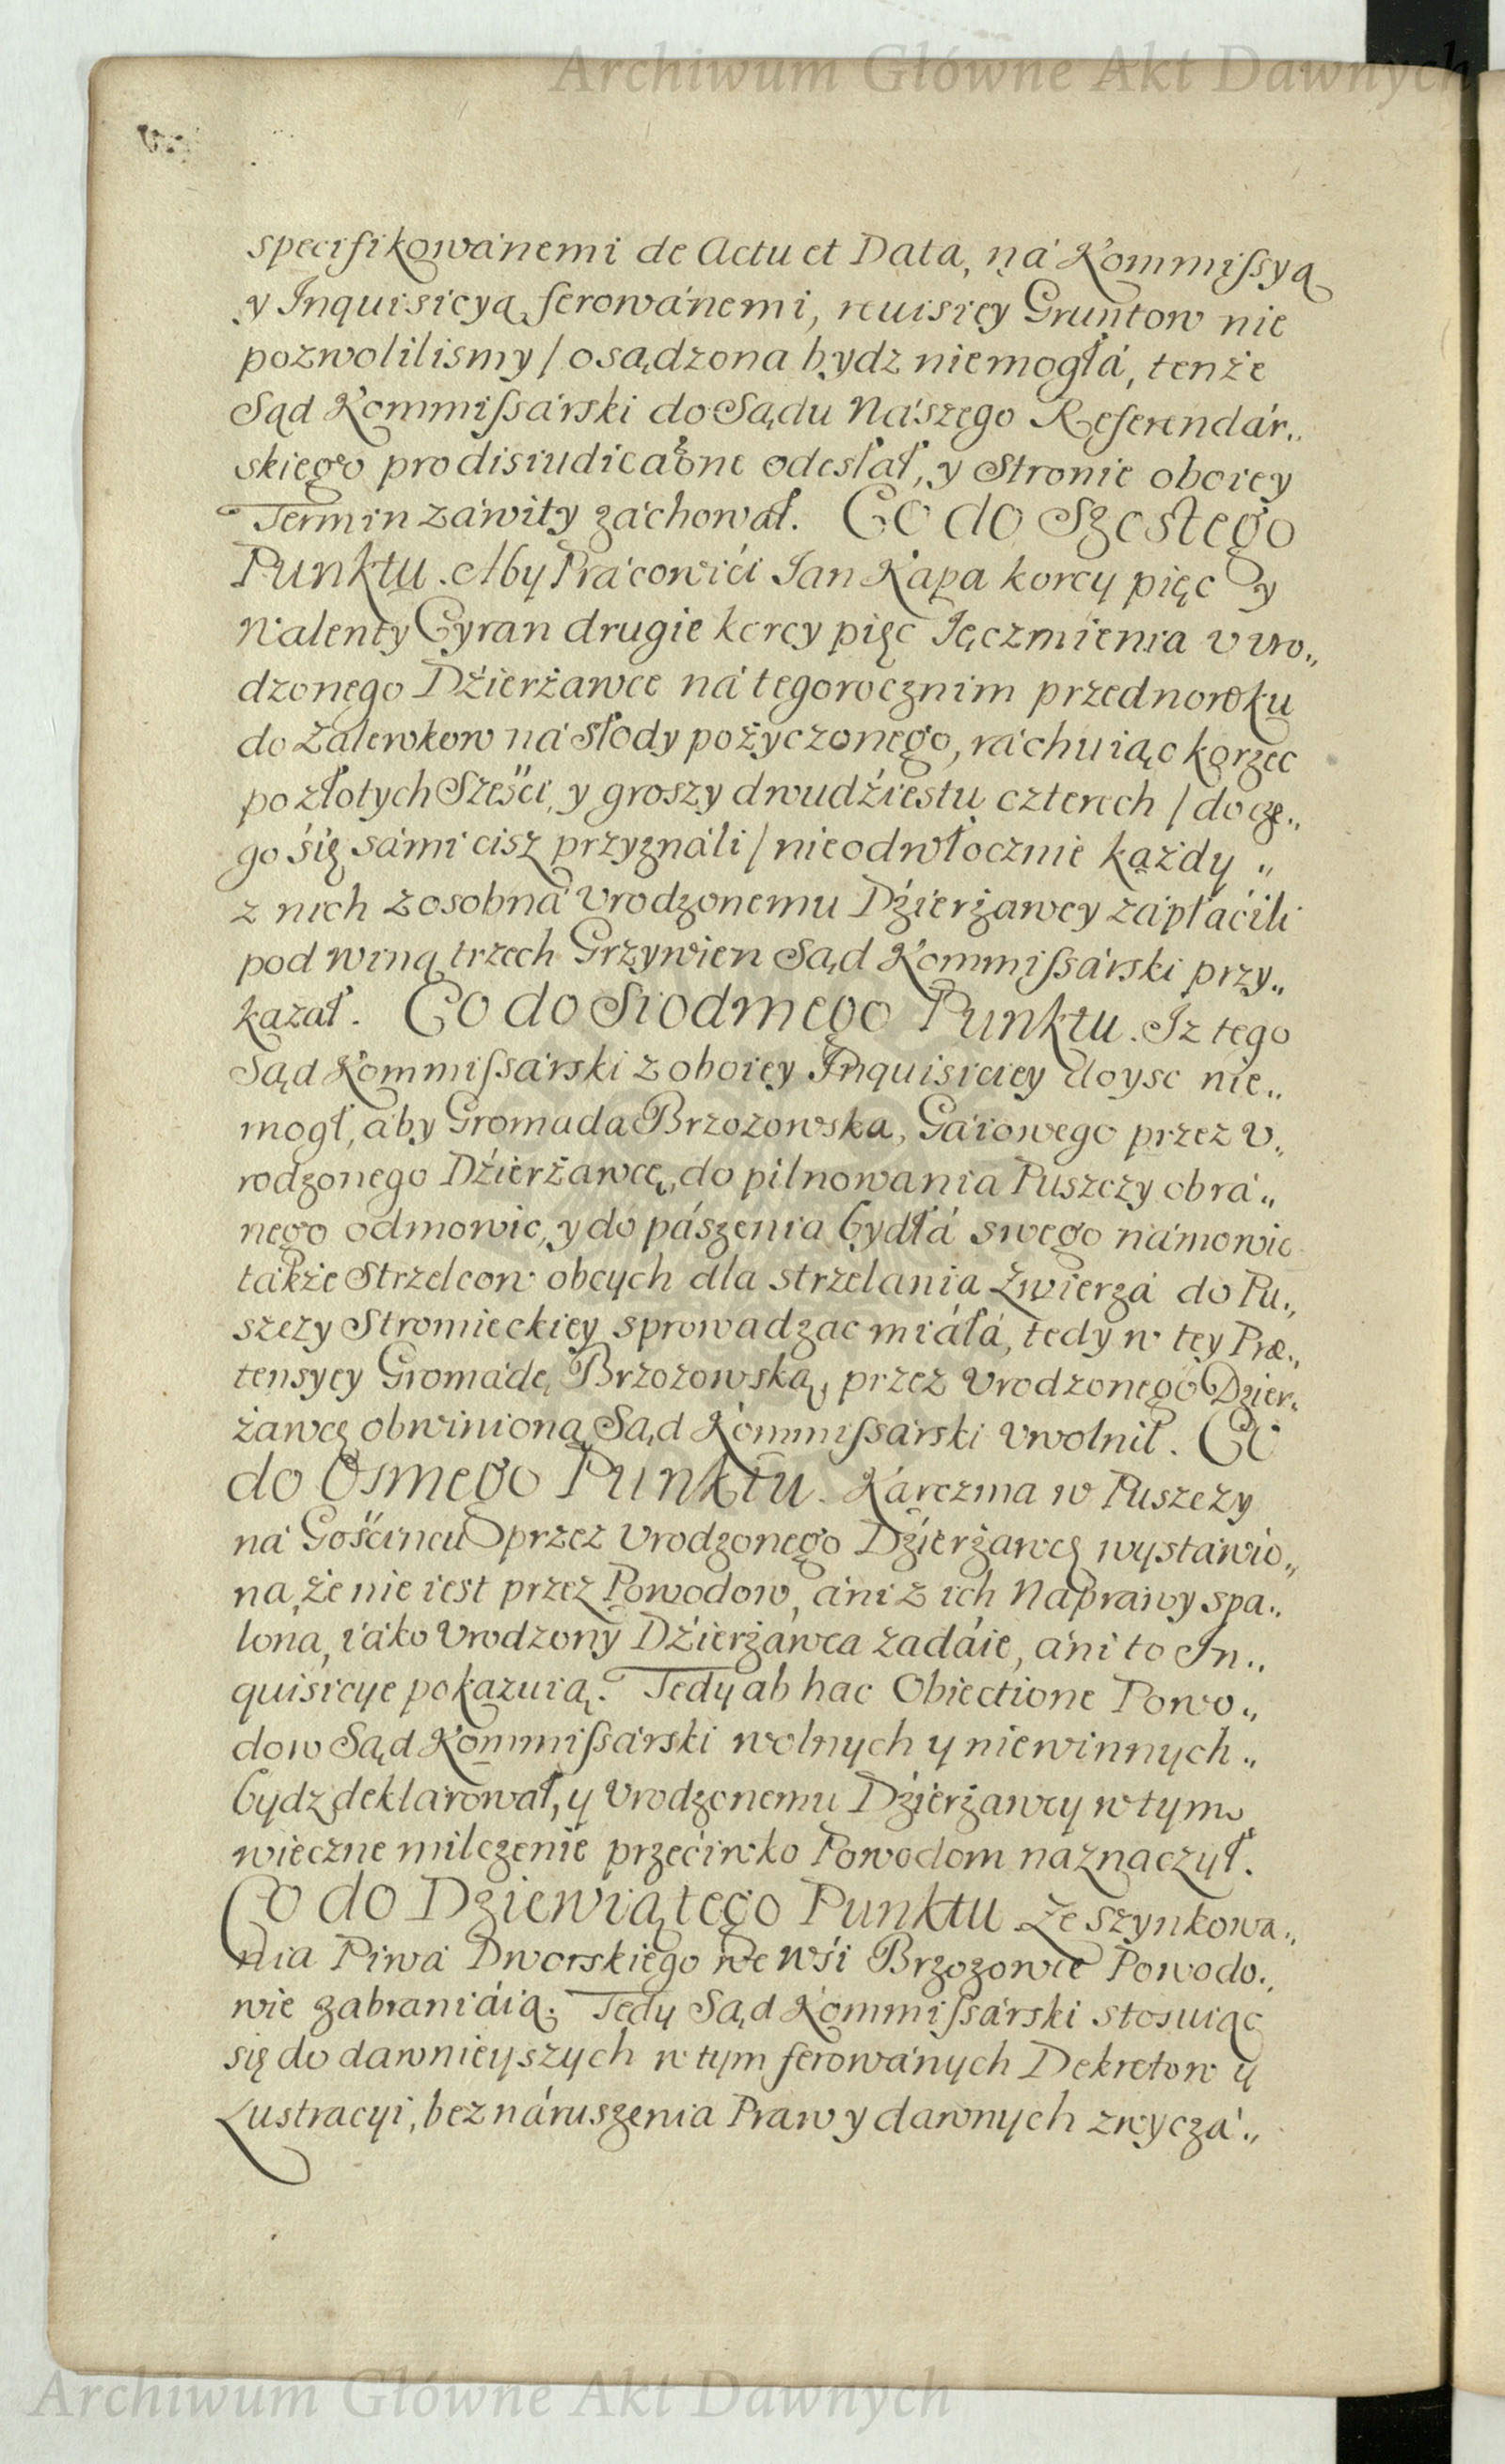 Archiwum Główne Akt Dawnych
specifikowánemi de Actu et Data, ná Kommiſsyą
y Inquisicyą ferowánemi, reuisiey Gruntow nie
pozwolilismy / osądzona bydz niemogłá, tenże
Sąd Kommiſsárski do Sądu Nászego Referendár„
skiego pro disiudicaone odesłał, y Stronie oboiey
Termin záwity záchował. Co do Szostego
Punktu. Aby Prácowići Jan Kapa korcy pięc y
Walenty Cyran drugie korcy pięc Jęczmienia v vro„
dzonego Dźierżawce ná tegorocznim przednowku
do Zalewkow ná słody pożyczonego, ráchuiąc korzec
po złotych Sześci, y groszy dwudźiestu czterech / do cze„
go śię sámi cisz przyználi / nieodwłocznie każdy „
z nich zosobná Vrodzonemu Dźierżawcy zápłáćili
pod winą trzech Grzywien Sąd Kommiſsárski przy„
kazał. Co do Siodmego Punktu. Iz tego
Sąd Kommiſsárski z oboiey Inquisiciey doysc nie„
mogł, áby Gromada Brzozowska, Gáiowego przez V„
rodzonego Dźierżawcę, do pilnowania Puszczy obrá„
nego odmowic, y do pászenia bydłá swego námowic
tákże Strzelcow obcych dla strzelania Zwierzá do Pu„
szczy Stromieckiey sprowadzac miáłá, tedy w tey Præ„
tensyey Gromádę Brzozowską, przez Vrodzonego Dzier„
żawcę obwinioną Sąd Kommiſsárski Vwolnił. Co
do Osmego Punktu. Kárczma w Puszczy
ná Gościncu przez Vrodzonego Dźierżawcę wystáwio„
na, że nie iest przez Powodow, áni z ich Naprawy spa„
lona, iáko Vrodzony Dźierżáwca zadáie, áni to In„
quisicye pokazuią. Tedy ab hac Obiectione Powo„
dow Sąd Kommiſsárski wolnych y niewinnych „
bydz deklárował, y Vrodzonemu Dźierżawcy w tym
wieczne milczenie przećiwko Powodom náznaczył.
Co do Dziewiątego Punktu Że szynkowa„
nia Piwá Dworskiego we wśi Brzozowce Powodo„
wie zabraniáią. Tedy Sąd Kommiſsárski stosuiąc
się do dawnieyszych w tym ferowánych Dekretow y
Lustracyi, bez náruszenia Praw y dawnych zwyczá„
Archiwum Główne Akt Dawnych